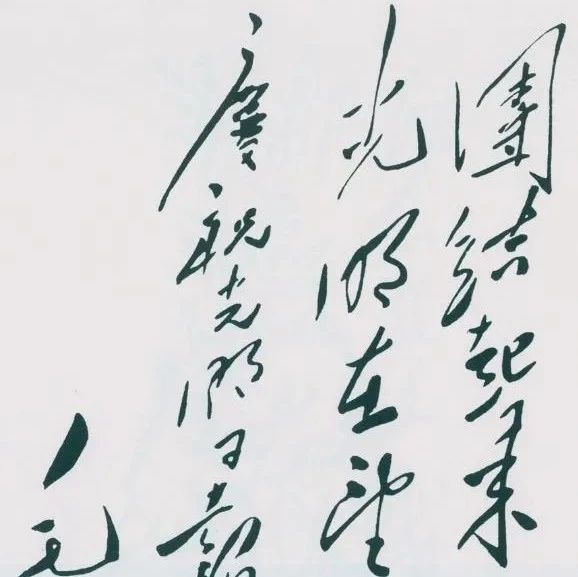 團結起来
光明在望
慶祝光明日報
毛